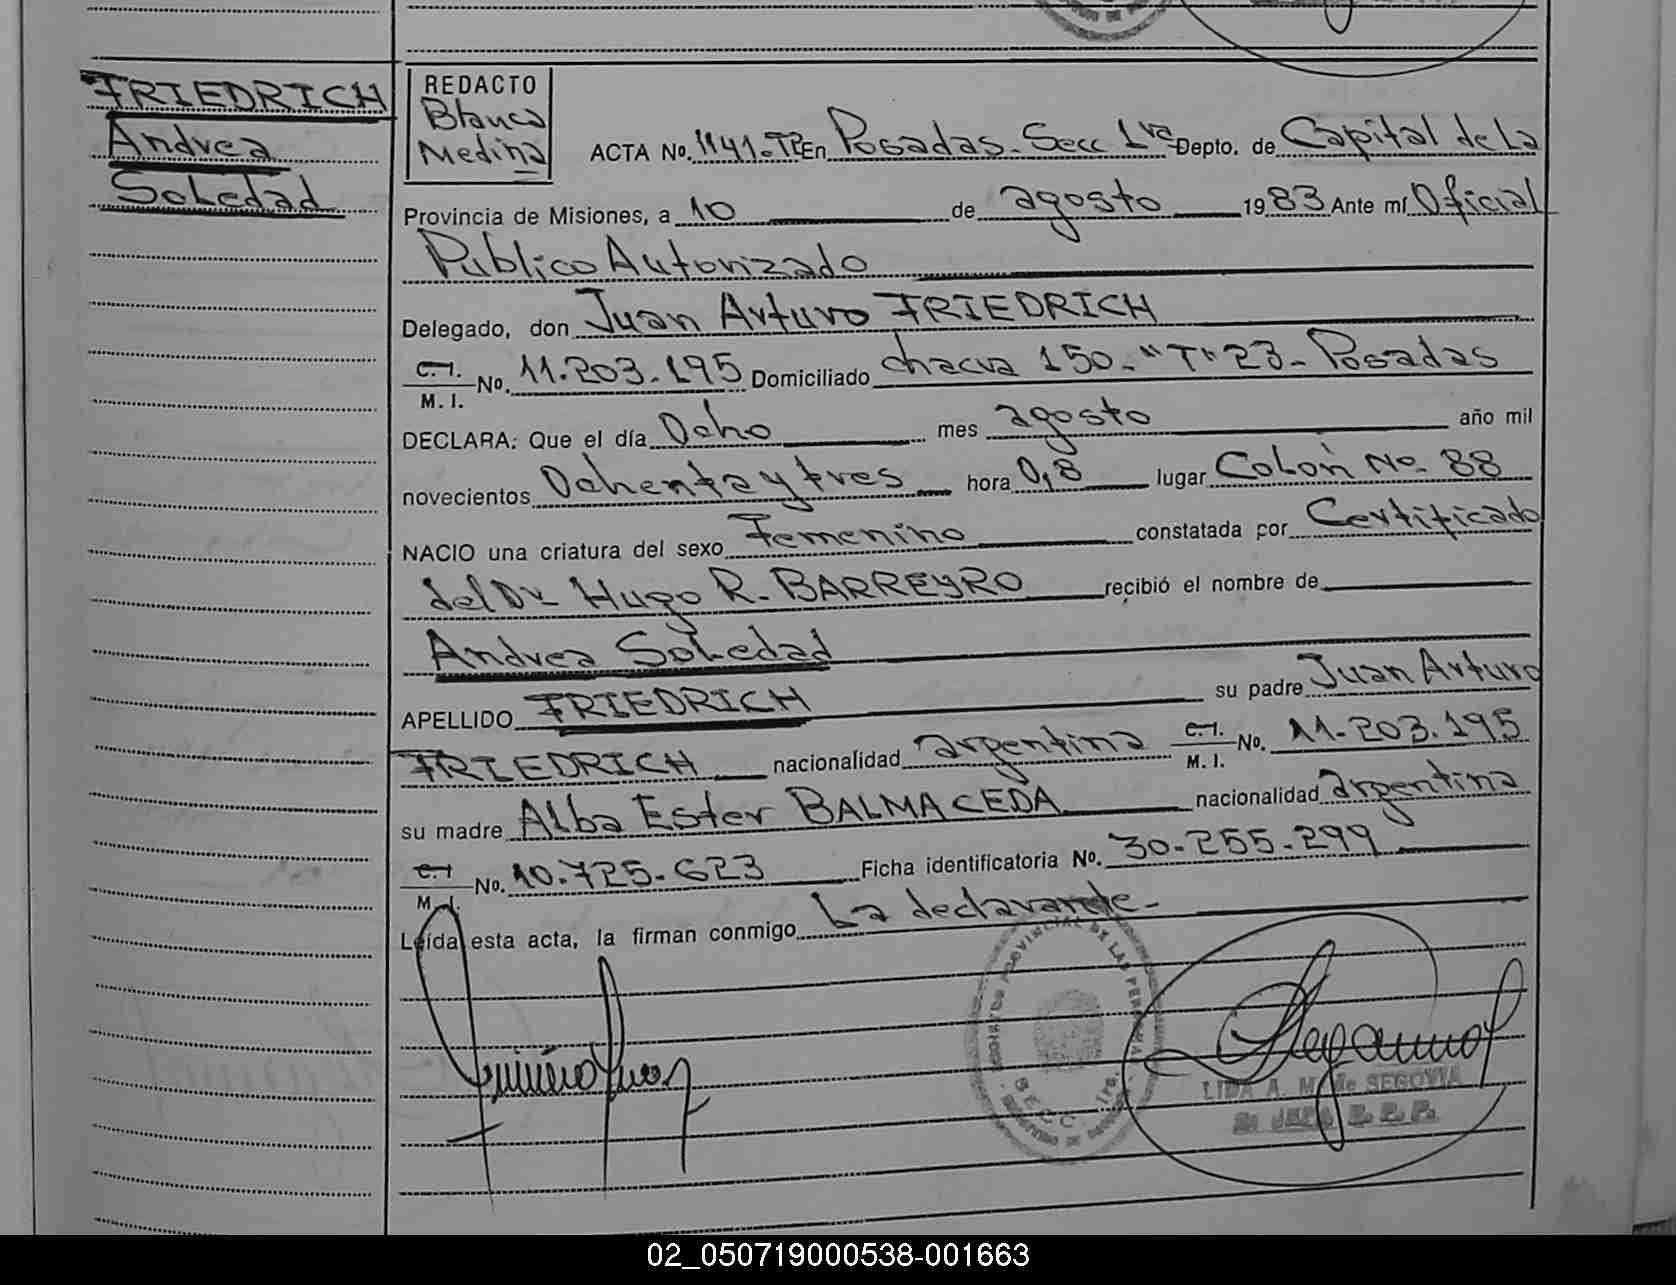 FRIEDRICH
Andrea
Soledad
REDACTO
Blanca
Medina
ACTA No. 1141.Tº En Posadas. Secc 1ra Depto. de Capital de La
Provincia de Misiones, a 10 de agosto 1983 Ante mí Oficial
Publico Autorizado
Delegado, don Juan Arturo FRIEDRICH
C.I. M.I. No. 11.203.195 Domiciliado chacra 150. "T" 23- Posadas
DECLARA: Que el día Ocho mes agosto año mil
novecientos Ochenta y tres hora 0,8 lugar Colón No. 88
NACIO una criatura del sexo Femenino constatada por Certificado
del Dr Hugo R. BARREYRO recibió el nombre de
Andrea Soledad
APELLIDO FRIEDRICH su padre Juan Arturo
FRIEDRICH nacionalidad argentina C.I. M.I. No. 11.203.195
su madre Alba Ester BALMACEDA nacionalidad argentina
C.I. M.I. No. 10.725.623 Ficha identificatoria No. 30.255.299
Leída esta acta, la firman conmigo La declarante-
REGISTRO PROVINCIAL DE LAS PERSONAS
LIDA A. M. de SEGOVIA
JEFA R.P.P.
02_050719000538-001663